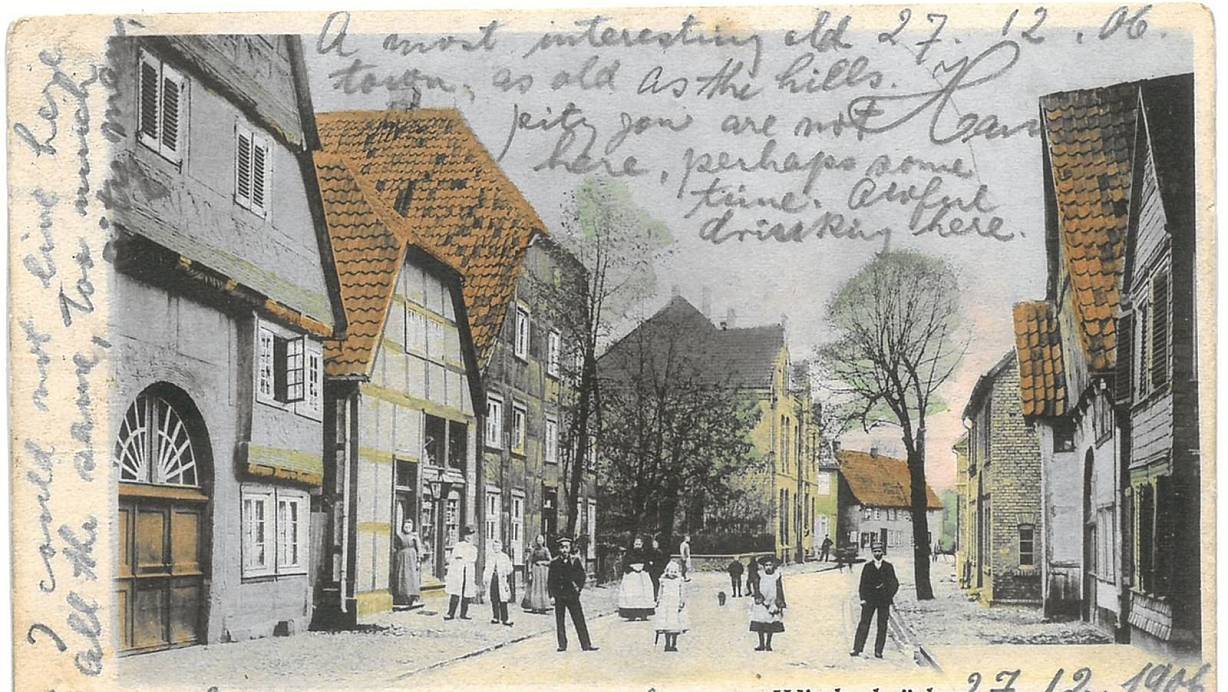 A most interesting old 27. 12. 06.
town, as old as the hills.
pity you are not
here, perhaps some
time. Awful
drinking here.
I could not live here
all the same, too much
27.12.1906